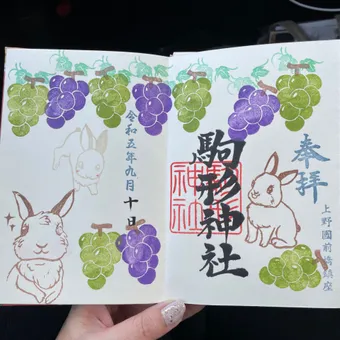 奉拝
上野國前橋鎮座
駒形神社
駒形神社
令和五年九月十日